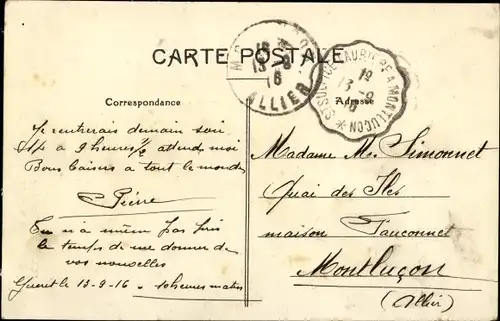 CARTE POSTALE
13-9
16
ALLIER
ST SULPICE-LAURIERE A MONTLUÇON
12
13-9
Correspondance
Adresse
Je rentrerais demain soir
à 9 heures 1/2 attends moi
Bons baisers a tout le monde
Pierre
Tu n'a même pas pris
le temps de me donner de
vos nouvelles
Gueret le 13-9-16 - 10 heures matin
Madame M. Simonnet
Quai des Iles
maison Fauconnet
Montluçon
(Allier)